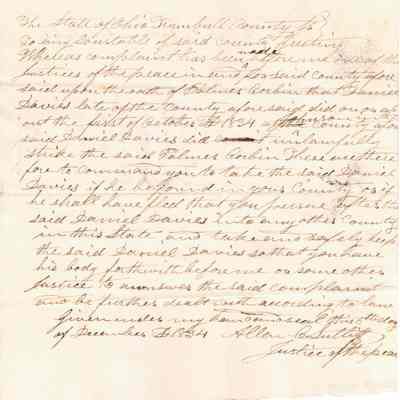 The State of Ohio Trumbull County ss
To any Constable of said county Greeting
Whereas complaint has been made before me one of the
Justices of the peace in and for said county afore
said upon the oath of Palmer Corbin that Daniel
Davies late of the County aforesaid did on or ab
out the first of october AD 1834 at Johnson in the County afore
said Daniel Davies did unlawfully
strike the said Palmer Corbin These are there
fore to command you to take the said Daniel
Davies if he be found in your County or if
he shall have fled that you persue after the
said Daniel Davies into any other County
in this State and take and safely keep
the said Daniel Davies so that you have
his body forthwith before me or some other
Justice to answer the said complaint
and be further dealt with according to law
Given under my hand and seal this day
of December AD 1834 Allen
Justice of the peace